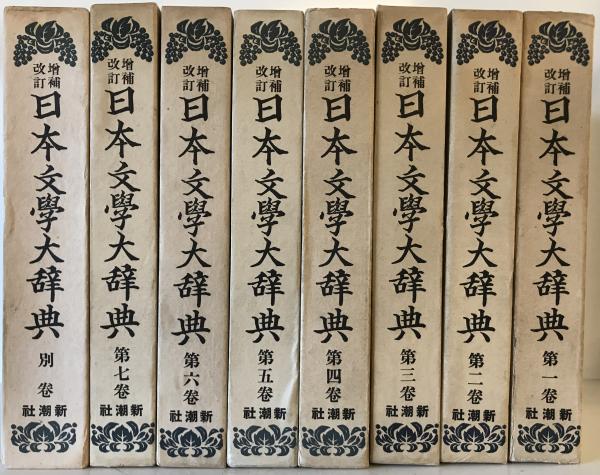 增補
改訂
日本文學大辞典
第一卷
新潮社
增補
改訂
日本文學大辞典
第二卷
新潮社
增補
改訂
日本文學大辞典
第三卷
新潮社
增補
改訂
日本文學大辞典
第四卷
新潮社
增補
改訂
日本文學大辞典
第五卷
新潮社
增補
改訂
日本文學大辞典
第六卷
新潮社
增補
改訂
日本文學大辞典
第七卷
新潮社
增補
改訂
日本文學大辞典
別卷
新潮社